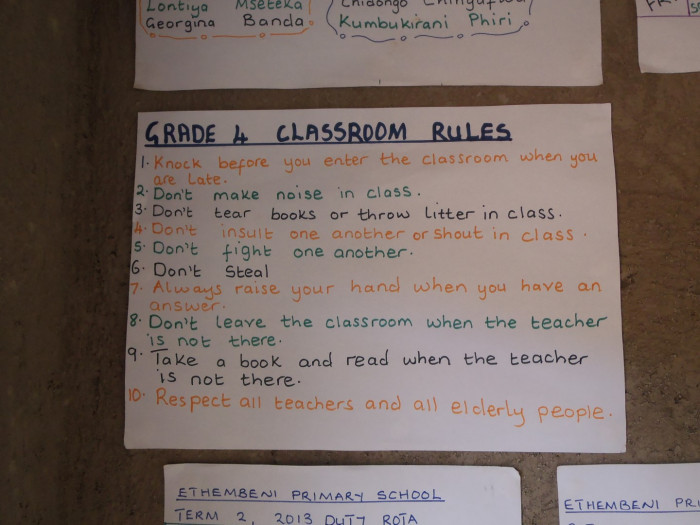 Lontiya Mseteka
Georgina Banda
Kumbukirani Phiri
GRADE 4 CLASSROOM RULES
1. Knock before you enter the classroom when you
are late.
2. Don't make noise in class.
3. Don't tear books or throw litter in class.
4. Don't insult one another or shout in class.
5. Don't fight one another.
6. Don't Steal
7. Always raise your hand when you have an
answer.
8. Don't leave the classroom when the teacher
is not there.
9. Take a book and read when the teacher
is not there.
10. Respect all teachers and all elderly people.
ETHEMBENI PRIMARY SCHOOL
TERM 2, 2013 DUTY ROTA
ETHEMBENI